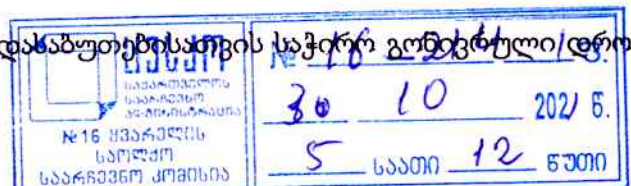 დასაბუთებისათვის საჭირო გონივრული დრო
საქართველოს
საარჩევნო
ადმინისტრაცია
№16 ყვარელის
საოლქო
საარჩევნო კომისია
№ 16
30 10 2021 წ.
5 საათი 12 წუთი